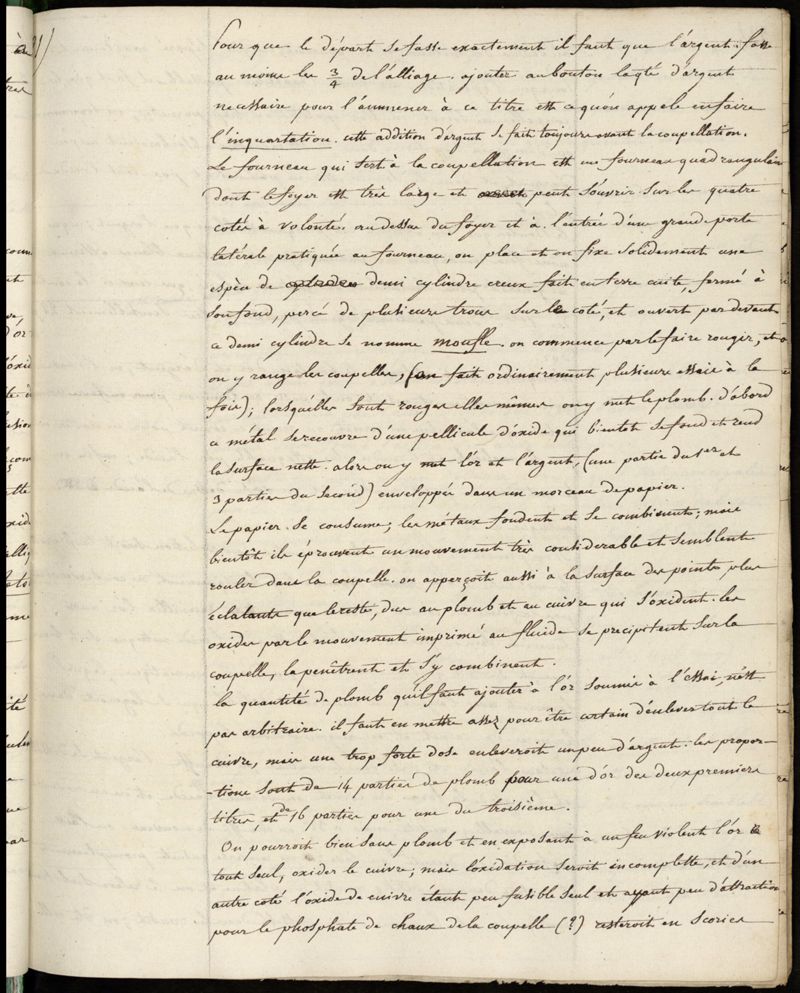 Pour que le départ se fasse exactement il faut que l'argent fasse
au moins les 3/4 de l'alliage. ajouter au bouton la qté d'argent
necessaire pour l'ammener à ce titre est ce qu'on appele en faire
l'inquartation. cette addition d'argent se fait toujours avant la coupellation.
Le fourneau qui sert à la coupellation est un fourneau quadrangulaire
dont le foyer est très large et peut s'ouvrir sur les quatre
cotés à volonté. au dessus du foyer et à l'entrée d'une grande porte
latérale pratiquée au fourneau, on place et on fixe solidement une
espèce de demi cylindre creux fait en terre cuite, fermé à
son fond, percé de plusieurs trous sur le coté, et ouvert par devant
ce demi cylindre se nomme moufle. on commence par le faire rougir, et
on y range les coupelles, (on fait ordinairement plusieurs essais à la
fois); lorsqu'elles sont rouges elles mêmes on y met le plomb. d'abord
ce métal se recouvre d'une pellicule d'oxide qui bientôt se fond et rend
la surface nette. alors on y met l'or et l'argent, (une partie du 1er et
3 parties du second) enveloppés dans un morceau de papier.
Le papier se consume; les métaux fondent et se combinent; mais
bientôt ils éprouvent un mouvement très considerable et semblent
rouler dans la coupelle. on apperçoit aussi à la surface des points plus
éclatants que le reste, dus au plomb et au cuivre qui s'oxident. les
oxides par le mouvement imprimé au fluide se precipitent sur la
coupelle, la penêtrent et s'y combinent.
la quantité de plomb qu'il faut ajouter à l'or soumis à l'essai, n'est
pas arbitraire. il faut en mettre assez pour être certain d'enlever tout le
cuivre, mais une trop forte dose enleveroit un peu d'argent. les propor-
-tions sont de 14 parties de plomb pour une d'or des deux premiers
titres, et de 16 parties pour une du troisième.
On pourroit bien sans plomb et en exposant à un feu violent l'or
tout seul, oxider le cuivre; mais l'oxidation seroit incomplette, et d'un
autre coté l'oxide de cuivre étant peu fusible seul et ayant peu d'attraction
pour le phosphate de chaux de la coupelle (?) resteroit en scories